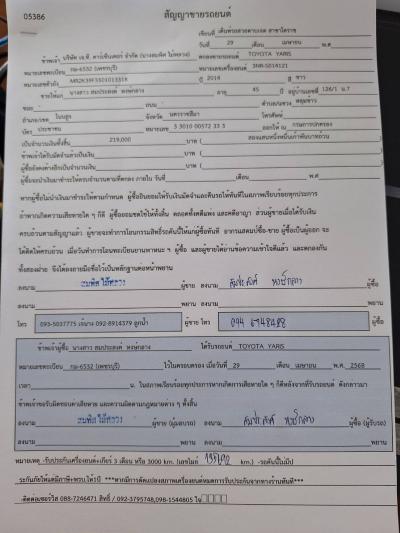 05386
สัญญาขายรถยนต์
เขียนที่ เต็นท์รถสวยตามเจต สาขาโคราช
วันที่ 29 เดือน เมษายน พ.ศ
ข้าพเจ้า บริษัท เจ.ซี. คาร์เซ็นเตอร์ จำกัด (นางสมพิศ ไม้หลวง) ตกลงขายรถยนต์ TOYOTA YARIS
หมายเลขทะเบียน กล-6532 (เพชรบุรี) หมายเลขเครื่องยนต์ 3NR-5014121
หมายเลขตัวถัง ปี 2014 สี ขาว
ขายให้แก่ นางสาว สมประสงค์ หงษ์กลาง อายุ 45 ปี อยู่บ้านเลขที่ 126/1 ม.7
ซอย - ถนน - ตำบล/แขวง หลุมข้าว
อำเภอ/เขต โนนสูง จังหวัด นครราชสีมา โทรศัพท์
บัตร ประชาชน หมายเลข 3 3010 00572 33 3 ออกให้ ณ กรมการปกครอง
เป็นจำนวนเงินทั้งสิ้น 219,000 บาท ( สองแสนหนึ่งหมื่นเก้าพันบาทถ้วน )
ข้าพเจ้าได้รับมัดจำแล้วเป็นเงิน บาท ( )
ผู้ซื้อยังคงค้างอีกเป็นจำนวนเงิน บาท ( )
ผู้ซื้อจะนำเงินมาชำระให้ครบจำนวนตามที่ตกลง ภายใน วันที่ เดือน พ.ศ
หากผู้ซื้อไม่นำเงินมาชำระให้ตามกำหนด ผู้ซื้อยินยอมให้ริบเงินมัดจำและคืนรถให้ทันทีในสภาพเรียบร้อยทุกประการ
ถ้าหากเกิดความเสียหายใด ๆ ก็ดี ผู้ซื้อยอมชดใช้ให้ทั้งสิ้น ตลอดทั้งคดีแพ่ง และคดีอาญา ส่วนผู้ขายเมื่อได้รับเงิน
ครบถ้วนตามสัญญาแล้ว ผู้ขายจะทำการโอนกรรมสิทธิ์รถคันนี้ให้แก่ผู้ซื้อทันที อากรแสตมป์ซื้อ-ขาย ผู้ซื้อเป็นผู้ออก จะ
ได้ติดให้ครบถ้วน เมื่อวันทำการโอนทะเบียนยานพาหนะ ฯ ผู้ซื้อ และผู้ขายได้อ่านข้อความเข้าใจดีแล้ว และตกลงกัน
ทั้งสองฝ่าย จึงได้ลงลายมือชื่อไว้เป็นหลักฐานต่อหน้าพยาน
ลงนาม สมพิศ ไม้หลวง ผู้ขาย ลงนาม สมประสงค์ หงษ์กลาง ผู้ซื้อ
ลงนาม พยาน ลงนาม พยาน
โทร 093-5037775 เจ๊นาง 092-8914379 ลูกน้ำ ผู้ขาย โทร 094 ผู้ซื้อ
ข้าพเจ้าผู้ซื้อ นางสาว สมประสงค์ หงษ์กลาง ได้รับรถยนต์ TOYOTA YARIS
หมายเลขทะเบียน กล-6532 (เพชรบุรี) ไว้ในครอบครอง เมื่อวันที่ 29 เดือน เมษายน พ.ศ. 2568
เวลา น. ในสภาพเรียบร้อยทุกประการหากเกิดการเสียหายใด ๆ ก็ดีหลังจากที่รับรถยนต์ ดังกล่าวมา
ข้าพเจ้าขอรับผิดชอบค่าเสียหาย และความผิดตามกฎหมายต่าง ๆ ทั้งสิ้น
ลงนาม สมพิศ ไม้หลวง ผู้ขาย (ผู้มอบรถ) ลงนาม สมประสงค์ หงษ์กลาง ผู้ซื้อ (ผู้รับรถ)
ลงนาม พยาน ลงนาม พยาน
หมายเหตุ -รับประกันเครื่องยนต์+เกียร์ 3 เดือน หรือ 3000 km. (เลขไมล์ km.) -รถคันนี้ไม่มีป
ระกันภัยให้แต่มีภาษี+พรบ.ให้1ปี ***หากมีการดัดแปลงสภาพเครื่องยนต์หมดการรับประกันจากทางร้านทันที***
-ติดต่อเซอร์วิส 088-7246471 สิทธิ์ / 092-3795748,098-1544805 ไจ